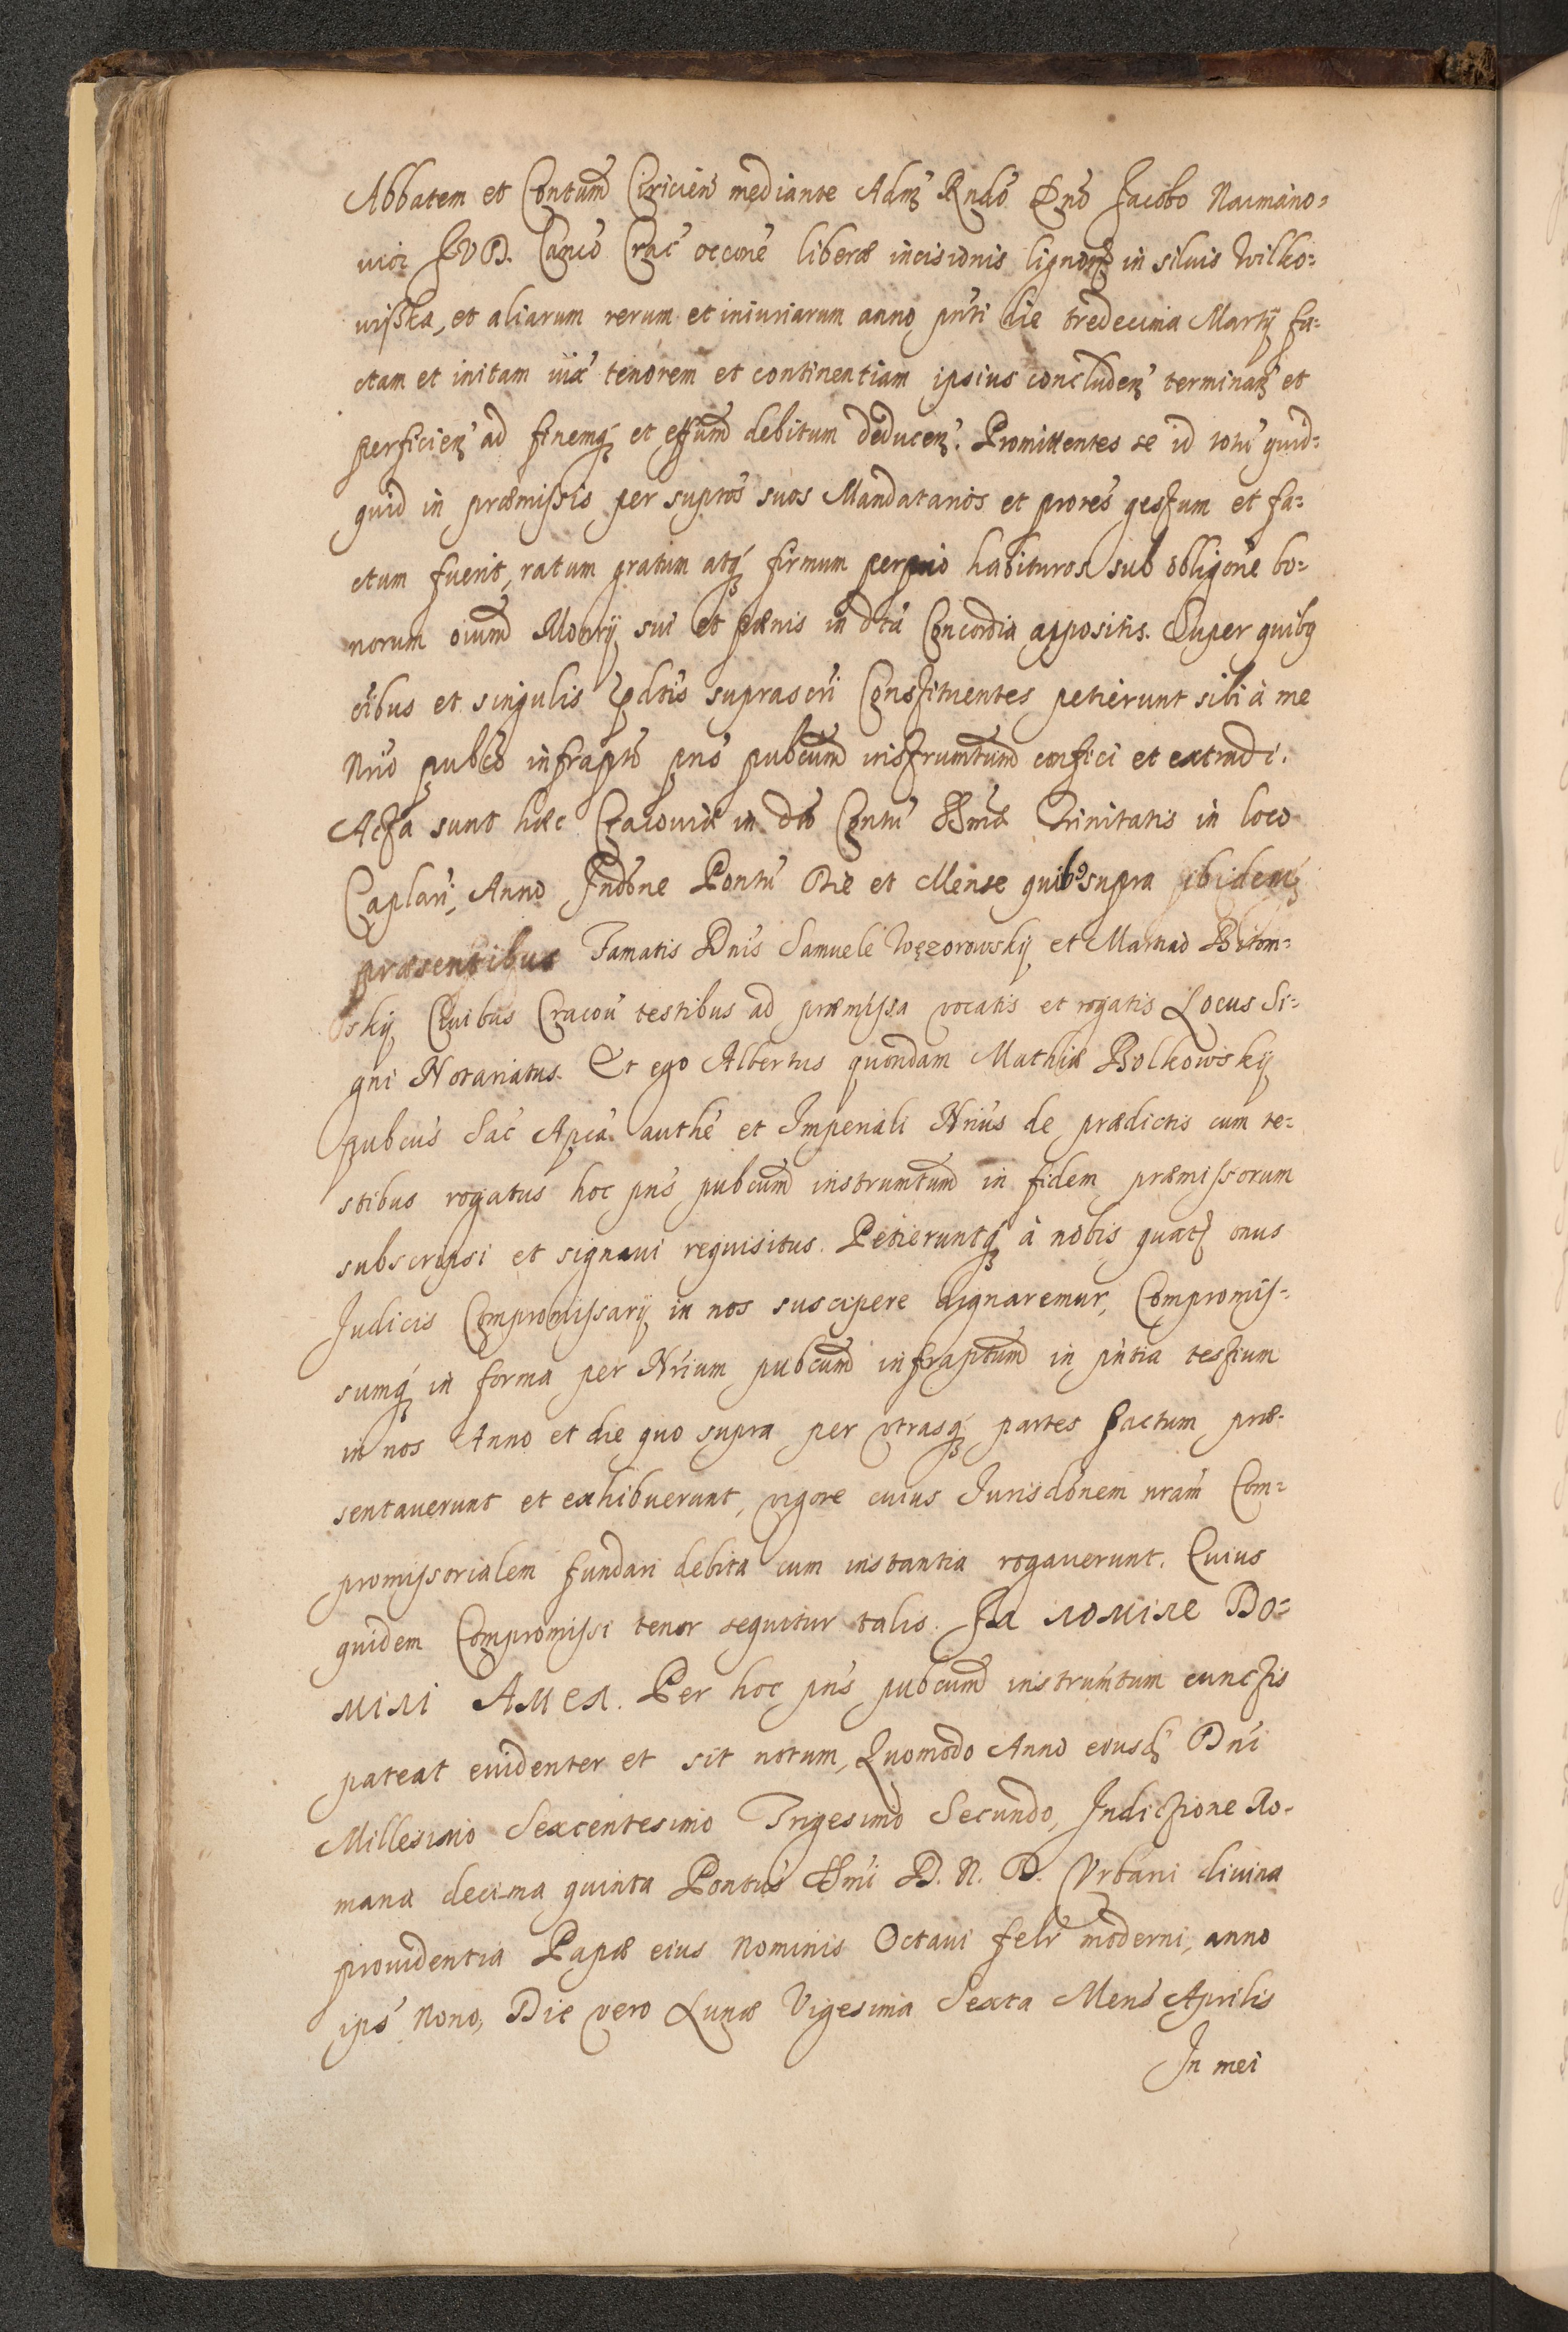 Abbatem et Contum Ciricien mediante Adm Rndo Dno Jacobo Naimano=
uic JVD. Canco Crac occone liberæ incisionis lignorum in siluis Wilko=
uißka, et aliarum rerum et iniuriarum anno pnti die tredecima Martij fa=
ctam et initam iux tenorem et continentiam ipsius concluden terminan et
perficien ad finemq et effum debitum deducen. Promittentes se id totu quid=
quid in præmissis per suptos suos Mandatarios et prores gestum et fa=
ctum fuerit, ratum gratum atq firmum perpuo habituros sub obligone bo=
norum oium Monrij sui et pænis in dta Concordia appositis. Super quibq
oibus et singulis pdtis suprascri Constituentes petierunt sibi à me
Nrio pubco infrapto pns pubcum instrumtum confici et extradi.
Acta sunt hæc Cracouiæ in dto Contu SSmæ Trinitatis in loco
Caplari, Anno Indone Pontu Die et Mense quibs supra ibidem
præsentibus Famatis Dnis Samuele Węzorowskij et Martino Biton=
skij Ciuibus Cracou testibus ad præmissa vocatis et rogatis Locus Si=
gni Notariatus. Et ego Albertus quondam Mathiæ Bolkowskij
pubcus Sac Apca authe et Imperiali Nrius de prædictis cum te=
stibus rogatus hoc pns pubcum instrumtum in fidem præmissorum
subscripsi et signaui requisitus. Petieruntq à nobis quat onus
Judicis Compromissarij in nos suscipere dignaremur, Compromis=
sumq in forma per Nrium pubcum infraptum in pntia testium
in nos Anno et die quo supra per vtrasq partes factum præ=
sentauerunt et exhibuerunt, vigore cuius Jurisdonem nram Com=
promissorialem fundari debita cum instantia rogauerunt. Cuius
quidem Compromissi tenor sequitur talis. In nomine Do=
mini Amen. Per hoc pns pubcum instrumtum cunctis
pateat euidenter et sit notum, Quomodo Anno eiusd Dni
Millesimo Sexcentesimo Trigesimo Secundo, Indictione Ro=
mana decima quinta Pontus SSmi D. N. D. Vrbani diuina
prouidentia Papæ eius Nominis Octaui felr moderni, anno
ips Nono, Die vero Lunæ Vigesima Sexta Mens Aprilis
In mei